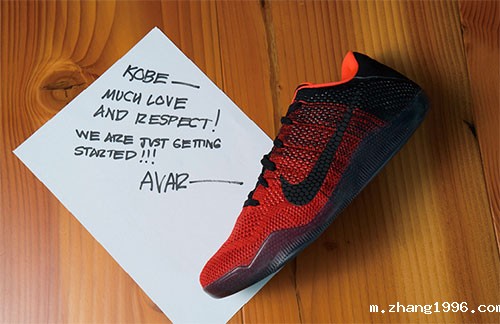 KOBE—
MUCH LOVE
AND RESPECT!
WE ARE JUST GETTING
STARTED!!!
AVAR—
m.zhang1996.com